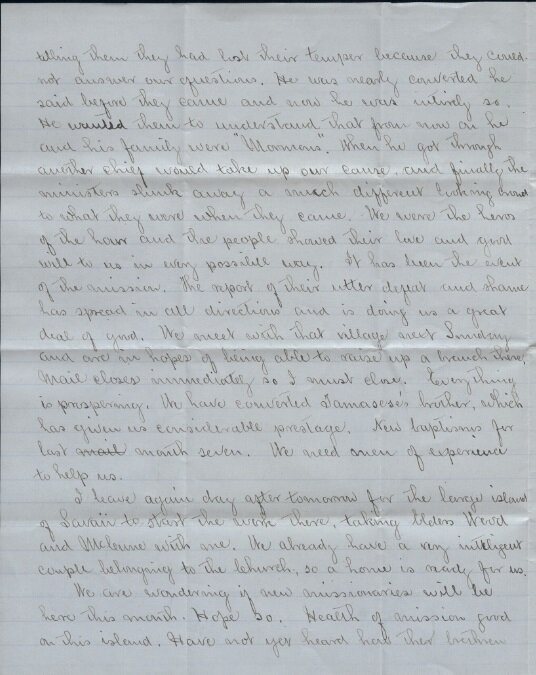 telling them they had lost their temper because they could
not answer our questions. He was nearly converted he
said before they came and now he was intirly so.
He wanted them to understand that from now on he
and his family were "Mormons". When he got through
another chief would take up our cause, and finally the
ministers slunk away a much different looking crowd
to what they were when they came. We were the heros
of the hour and the people showed their love and good
will to us in every possible way. It has been the event
of the mission. The report of their utter defeat and shame
has spread in all directions and is doing us a great
deal of good. We meet with that village next Sunday
and are in hopes of being able to raise up a branch there.
Mail closes immediately so I must close. Everything
is prospering. We have converted Tamasese's brother, which
has given us considerable prestage. New baptisms for
last mail month seven. We need men of experience
to help us.
I leave again day after tomorrow for the large island
of Savaii to start the work there, taking Elders Wood
and McCune with me. We already have a very inteligent
couple belonging to the Church, so a home is ready for us.
We are wondering if new missionaries will be
here this month. Hope so. Health of mission good
on this island. Have not yet heard how ther brethren